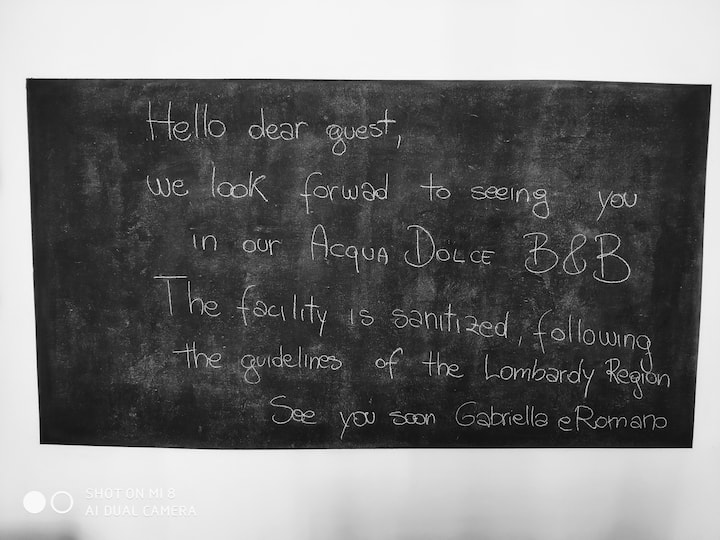 Hello dear guest,
we look forwad to seeing you
in our ACQUA DOLCE B&B
The facility is sanitized, following
the guidelines of the Lombardy Region
See you soon Gabriella e Romano
SHOT ON MI 8
AI DUAL CAMERA